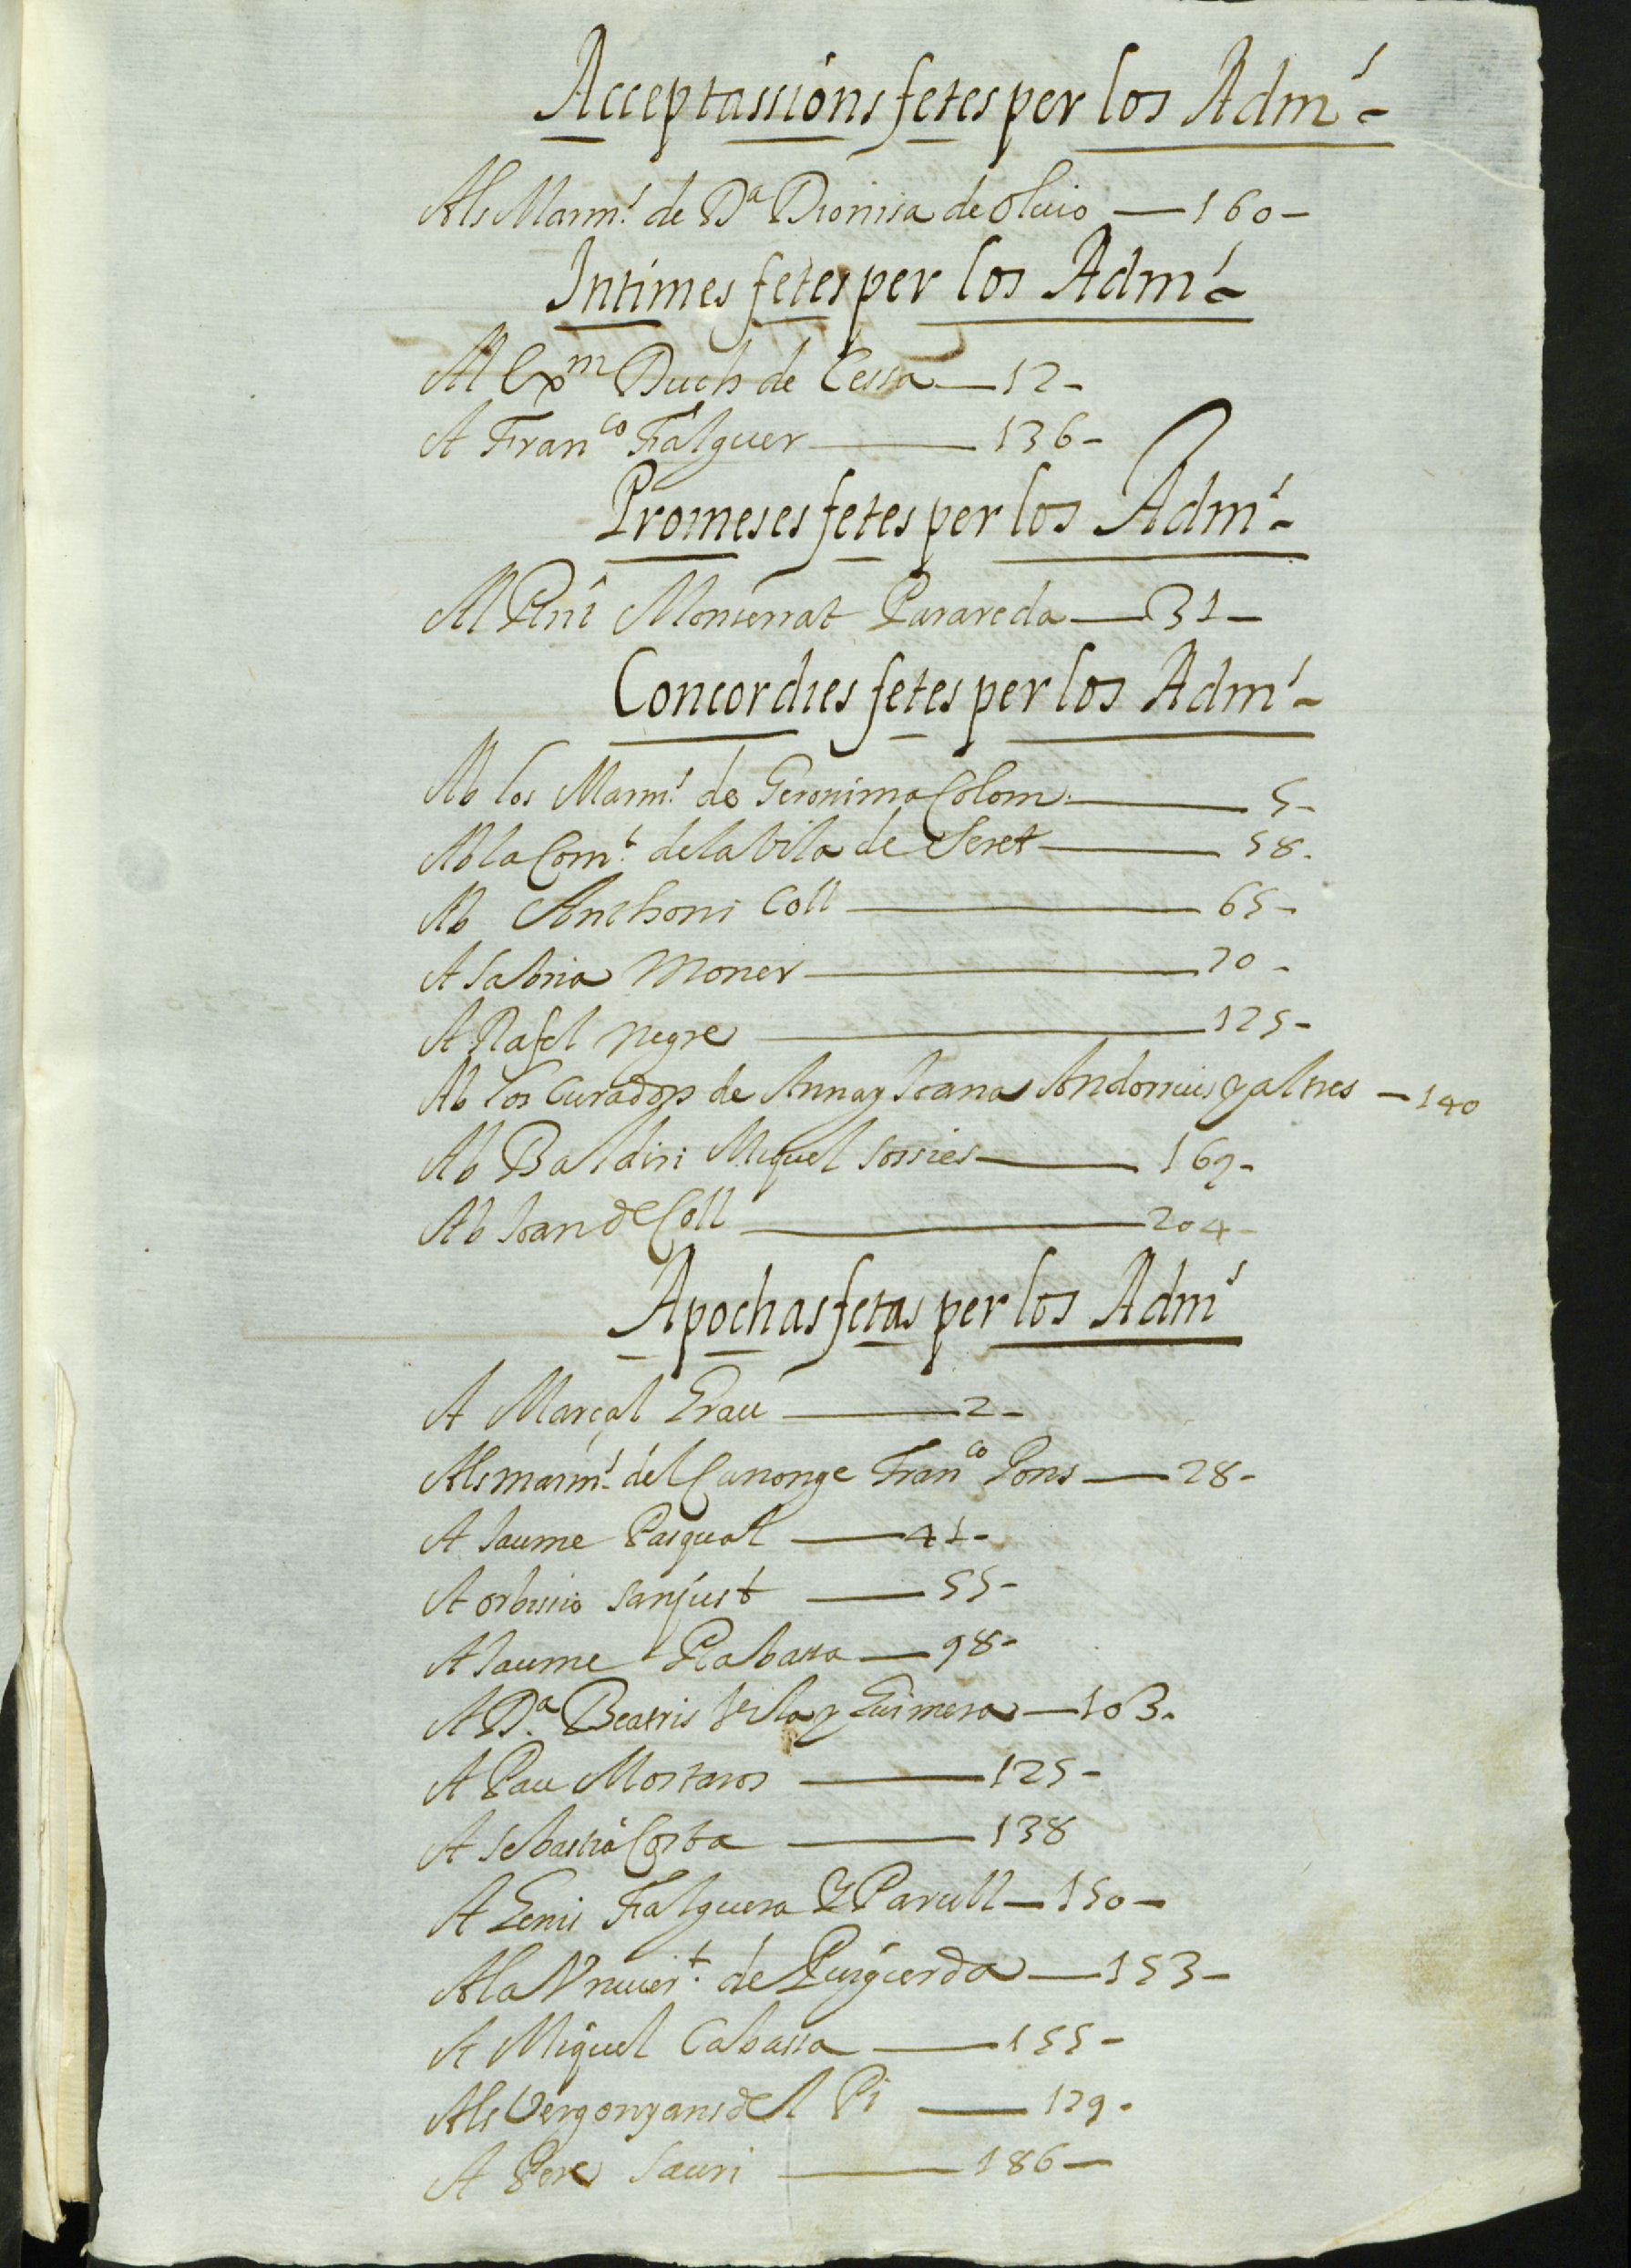 Acceptassions fetes per los Adm.^s
Als Marm.^s de D^a Dionisa de Oluio — 160 —
Intimes fetes per los Adm.^s
Al Ex^m Duch de Cessa — 12 —
A Fran^co Falguer — 136 —
Promeses fetes per los Adm.^s
Al Monserrat Parareda — 31 —
Concordies fetes per los Adm.^s
Ab los Marm.^s de Geronima Colom — 5 —
Ab la Com.^t de la Vila de Seret — 58.
Ab Anthoni Coll — 65 —
A Sabria Moner — 70 —
A Rafel Negre — 125 —
Ab los Curadors de Anna y Joana — 140
Ab Baldiri Miquel Sorries — 169 —
Ab Joan de Coll — 204 —
Apochas fetas per los Adm^s
A Marçal Grau — 2 —
Als marm.^s del Canonge Fran^co Pons — 28 —
A Jaume Pasqual — 41 —
A Sanjust — 55 —
A Jaume Rabassa — 98 —
A D.^a Beatris Vila y Guimera — 103.
A Pau Mostaros — 125 —
A Sebastia Costa — 138
A Genis Falguera y Parull — 150 —
A la Vniuer.^t de Puigcerda — 153 —
A Miquel Cabassa — 155 —
Als Vergonyans del Pi — 179.
A Pere Sauri — 186 —